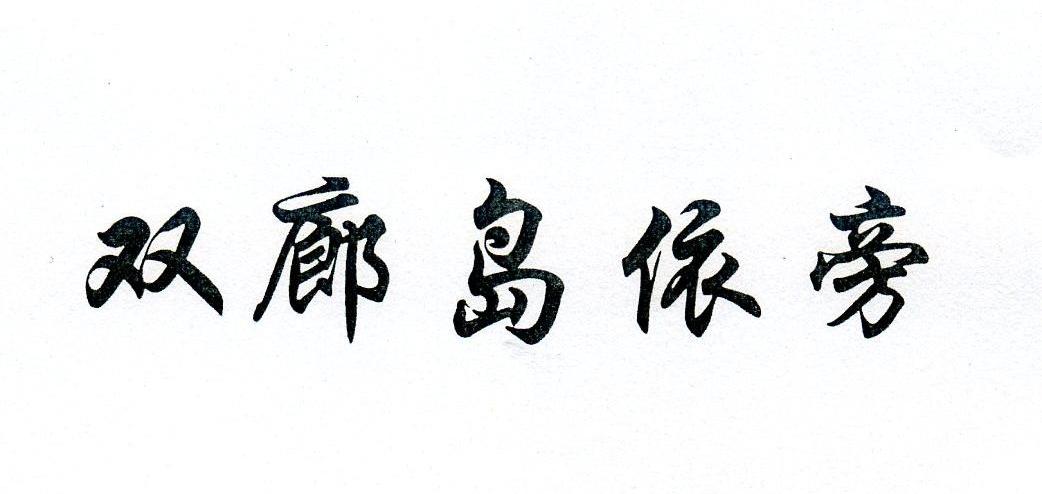 双廊岛依旁